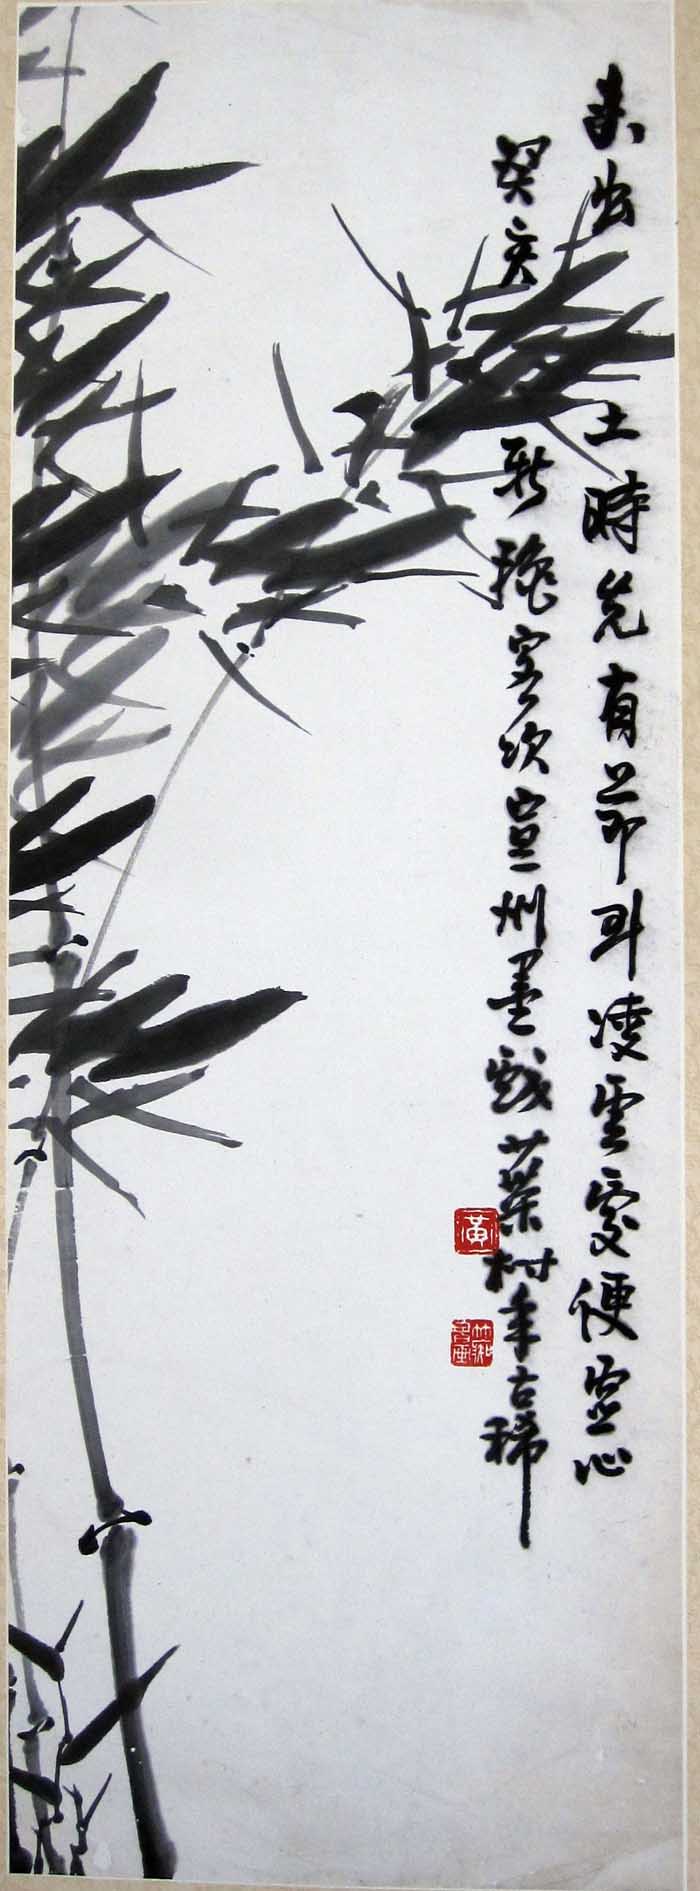 未出土時先有節到凌雲處便虛心
癸亥新穐客次宣州墨戲葉村年古稀
黃